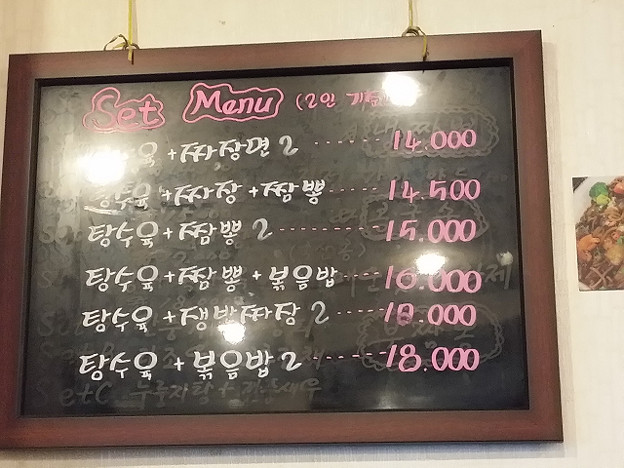 Set Menu (2인 기준)
탕수육 + 짜장면 2 ------ 14.000
탕수육 + 짜장 + 짬뽕 ------ 14.500
탕수육 + 짬뽕 2 --------- 15.000
탕수육 + 짬뽕 + 볶음밥 ---- 16.000
탕수육 + 쟁반짜장 2 ------ 18.000
탕수육 + 볶음밥 2 ------ 18.000